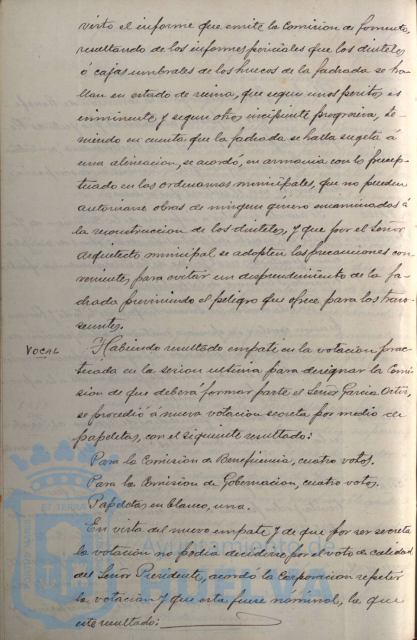 visto el informe que emite la Comision de fomento,
resultando de los informes periciales que los dinteles
ó cajas umbrales de los huecos de la fachada se ha-
llan en estado de ruina, que segun unos peritos es
inminente y segun otro incipiente progresiva, te-
niendo en cuenta que la fachada se halla sugeta á
una alineacion, se acordó, en armonia con lo precep-
tuado en las ordenanzas municipales, que no pueden
autorizarse obras de ningun género encaminados á
la reconstruccion de los dinteles, y que por el Señor
Arquitecto municipal se adopten las precauciones con-
venientes, para evitar un desprendimiento de la fa-
chada previniendo el peligro que ofrece para los tran-
seuntes.
VOCAL
Habiendo resultado empate en la votacion prac-
ticada en la sesion ultima para designar la Comi-
sion de que deberá formar parte el Señor Garcia Ortiz,
se procedió á nueva votacion secreta por medio de
papeletas, con el siguiente resultado:
Para la Comision de Beneficencia, cuatro votos.
Para la Comision de Gobernacion, cuatro votos.
Papeletas en blanco, una.
En vista del nuevo empate y de que por ser secreta
la votacion no podia decidirse por el voto de calidad
del Señor Presidente, acordó la Corporacion repetir
la votacion y que esta fuese nominal, la que
este resultado: